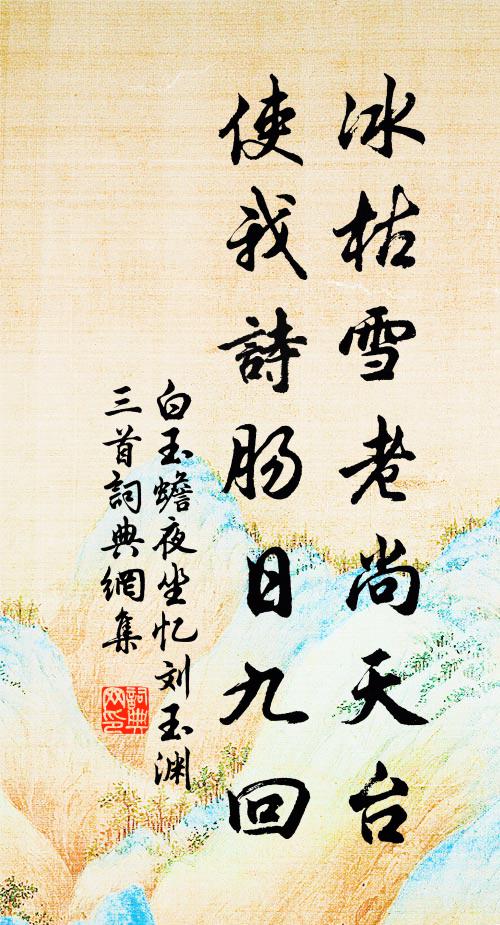 冰枯雪老尚天台
使我詩肠日九回
白玉蟾夜坐忆刘玉渊
三首詞典網集
詞典网印